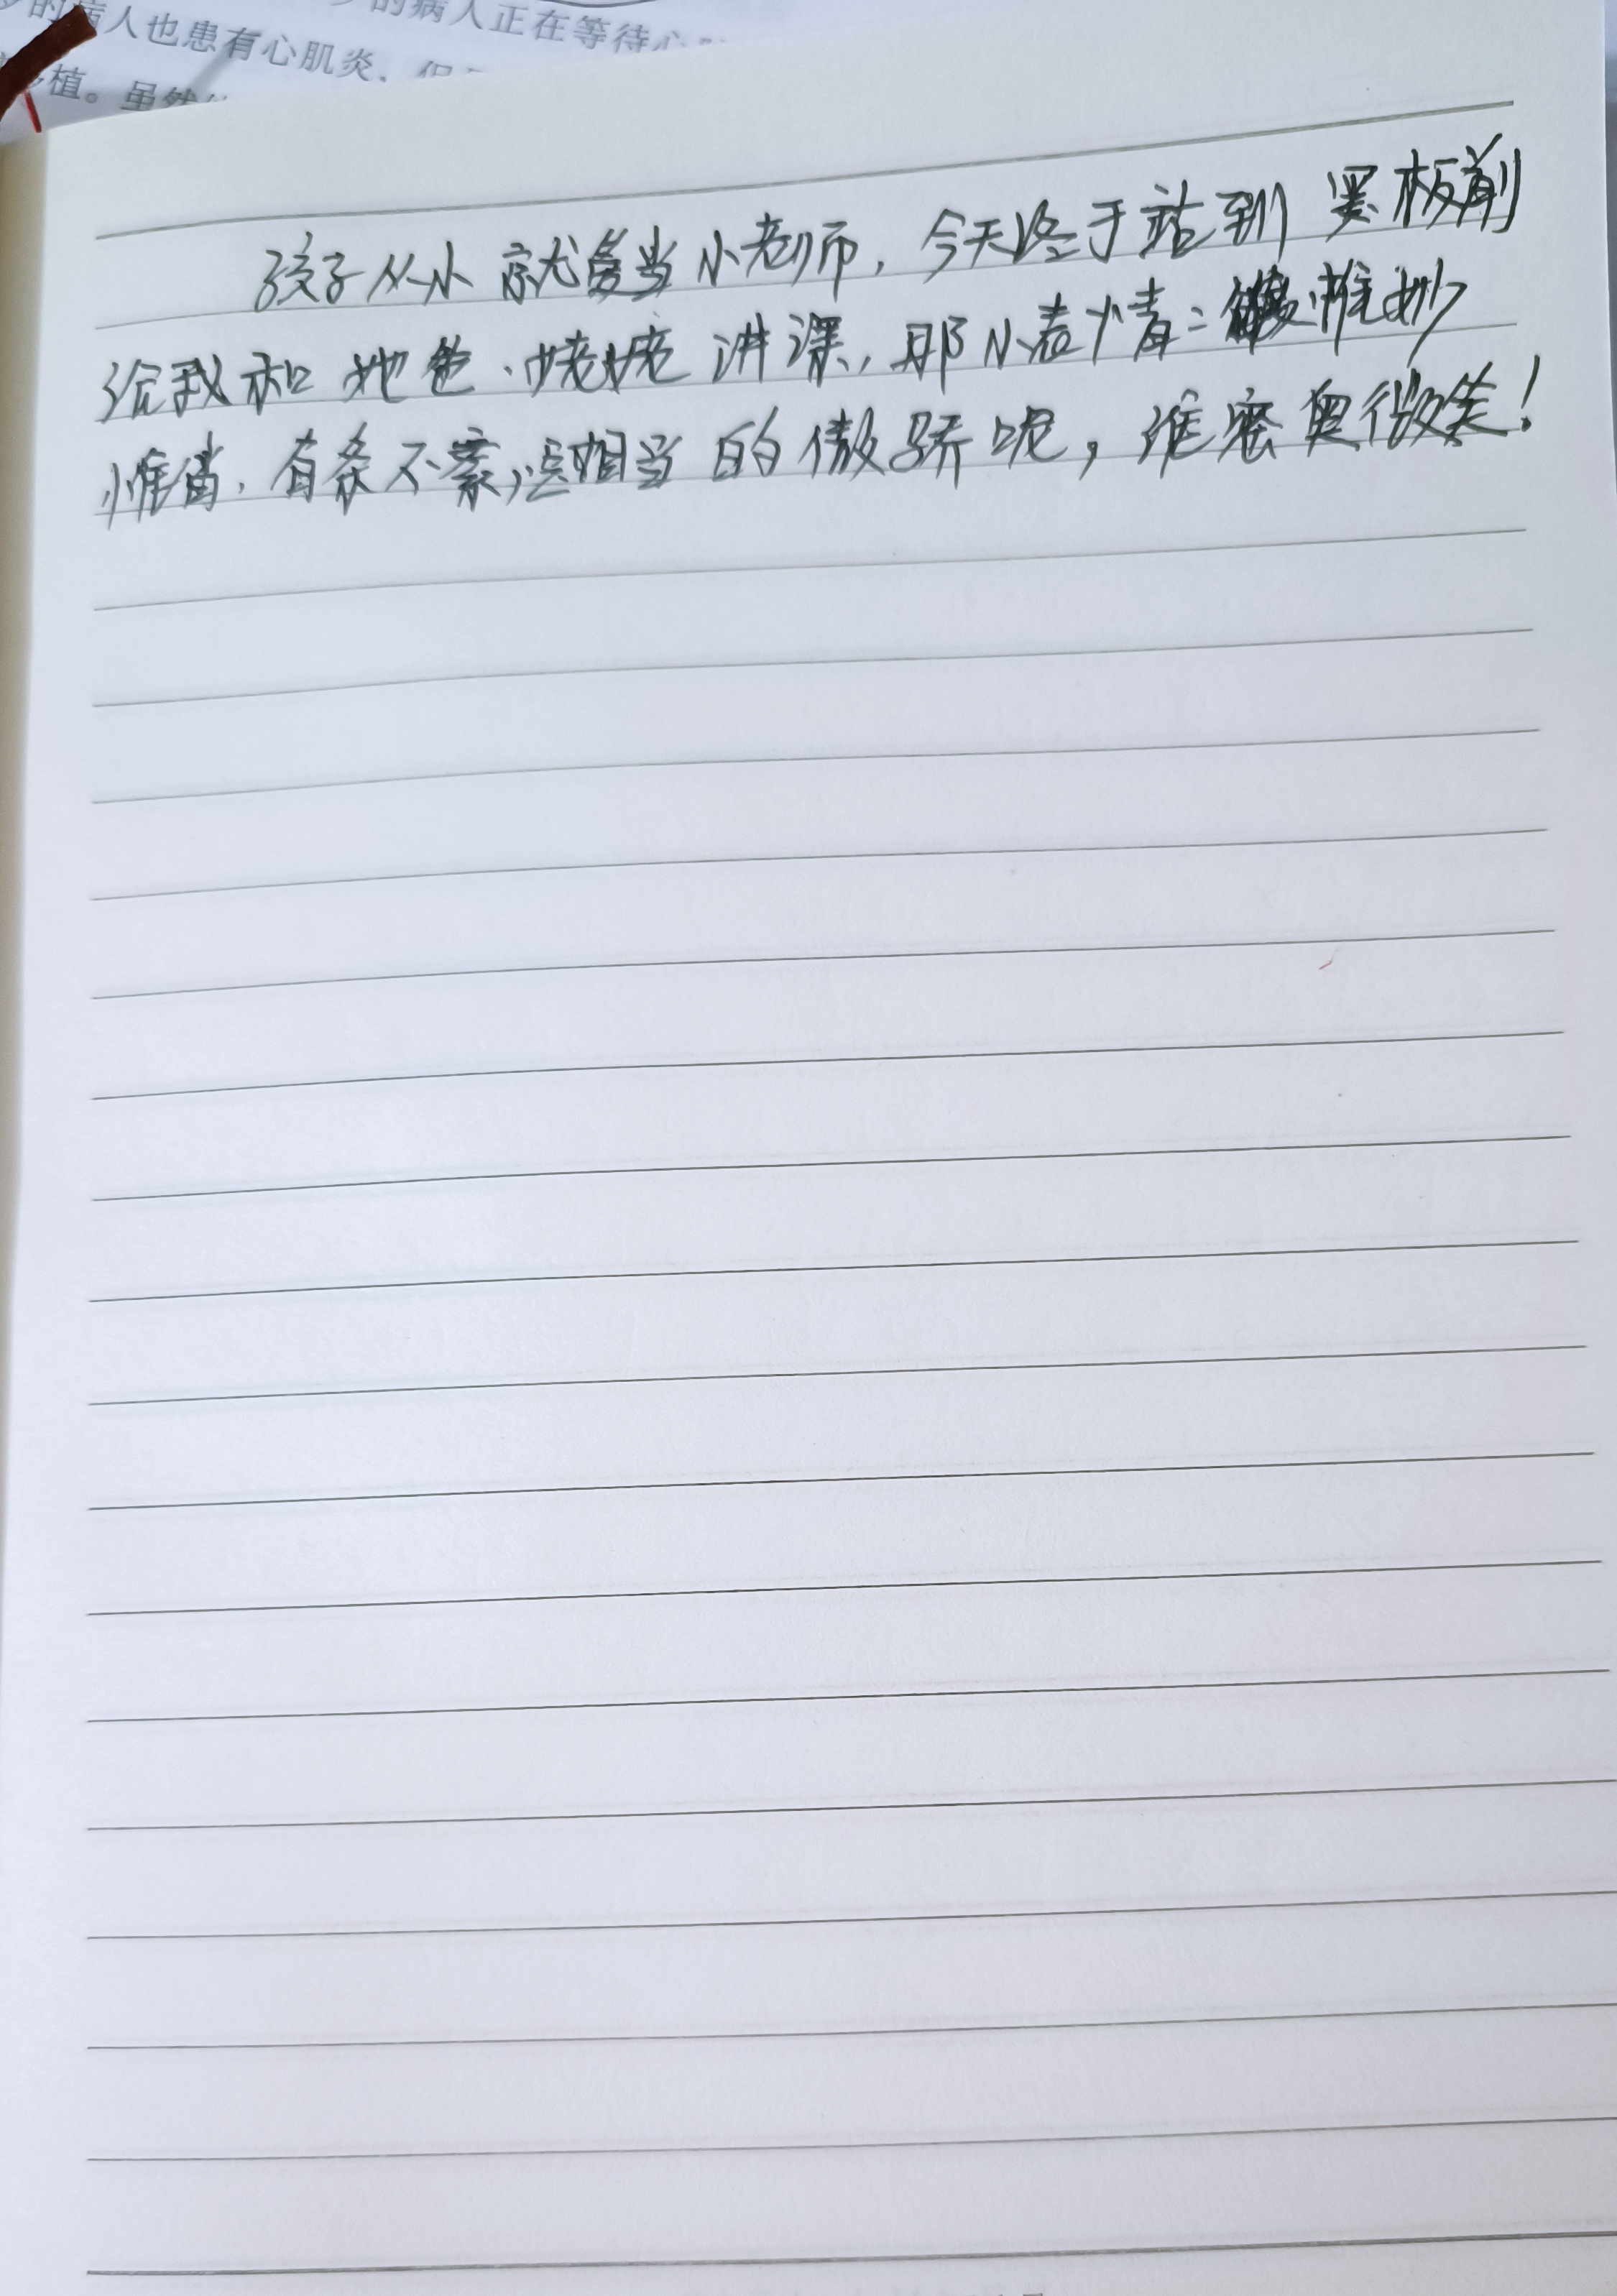 的病人也患有心肌炎，但
的病人正在等待心
移植。虽然
孩子从小就爱当小老师，今天终于站到黑板前
给我和她爸、姥姥讲课，那小表情：惟妙
惟肖，有条不紊，还相当的傲骄呢，谁密奥微笑！